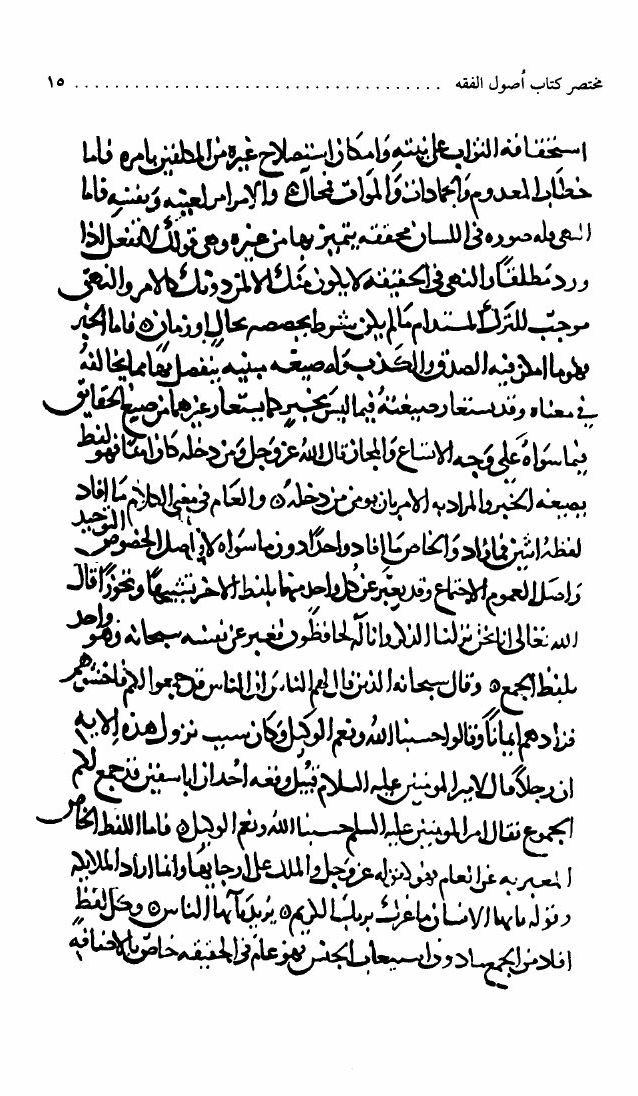 مختصر كتاب أصول الفقه ..................................... ١٥
استحقاقه الثواب على نيته وامكان استصلاح غيره من المكلفين بامره فاما
خطاب المعدوم والجمادات والموات فمحال ه والامر امر لعينه وبنفسه فاما
النهي فله صوره في اللسان محققه يتميز بها من غيره وهي قولك لا تفعل اذا
ورد مطلقا والنهي في الحقيقه لا يكون منك الا لمن دونك كالامر والنهي
موجب للترك المستدام ما لم يكن شرط يخصصه بحال او زمان ه فاما الخبر
فهو ما امكن فيه الصدق والكذب وله صيغه مبنيه ينفصل بها مما يخالفه
في معناه وقد تستعار صيغته فيما ليس بخبر كما يستعار غيرها من صيغ الحقايق
فيما سواه على وجه الاتساع والمجاز قال الله عز وجل ومن دخله كان امنا فهو لفظ
بصيغه الخبر والمراد به الامر بان يومن من دخله ه والعام في معنى الكلام ما افاد
لفظه اثنين فما زاد والخاص ما افاد واحدا دون ما سواه لان اصل الخصوص التوحيد
واصل العموم الاجتماع وقد يعبر عن كل واحد منهما بلفظ الاخر تشبيها وتجوزا قال
الله تعالى انا نحن نزلنا الذكر وانا له لحافظون فعبر عن نفسه سبحانه وهو واحد
بلفظ الجمع ه وقال سبحانه الذين قال لهم الناس ان الناس قد جمعوا لكم فاخشوهم
فزادهم ايمانا وقالوا حسبنا الله ونعم الوكيل وكان سبب نزول هذه الايه
ان رجلا قال لامير المومنين عليه السلام قبيل وقعه احد ان ابا سفين قد جمع لكم
الجموع فقال امير المومنين عليه السلم حسبنا الله ونعم الوكيل ه فاما اللفظ الخاص
المعبر به عن العام فهو كقوله عز وجل والملك على ارجايها وانما اراد الملايكه
وقوله يا ايها الانسان ما غرك بربك الكريم ه يريد يا ايها الناس ه وكل لفظ
افاد من الجمع ما دون استيعاب الجنس فهو عام في الحقيقه خاص بالاضافه